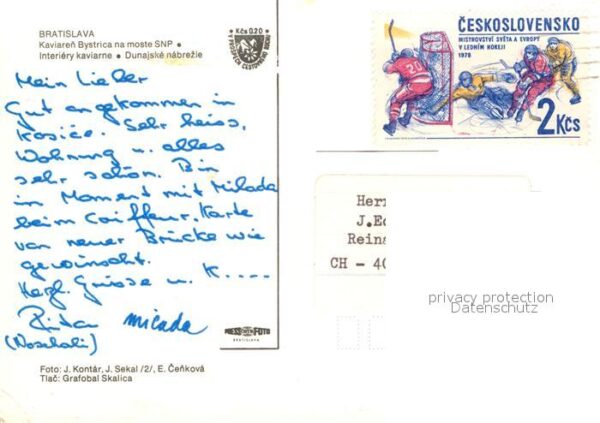 BRATISLAVA
Kaviareň Bystrica na moste SNP •
Interiéry kaviarne • Dunajské nábrežie
Kčs 0,20
Mein Lieber
Gut angekommen in
Kosice. Sehr heiss,
Wohnung u. alles
sehr schön. Bin
im Moment mit Milada
beim Coiffeur. Karte
von neuer Brücke wie
gewünscht.
Herzl. Grüsse u. K....
Rita Milada
PRESSFOTO
BRATISLAVA
Foto: J. Kontár, J. Sekal /2/, E. Čeňková
Tlač: Grafobal Skalica
ČESKOSLOVENSKO
MISTROVSTVÍ SVĚTA A EVROPY
V LEDNÍM HOKEJI
1978
20
2 Kčs
Herr
J.Ec
Reina
CH - 40
privacy protection
Datenschutz